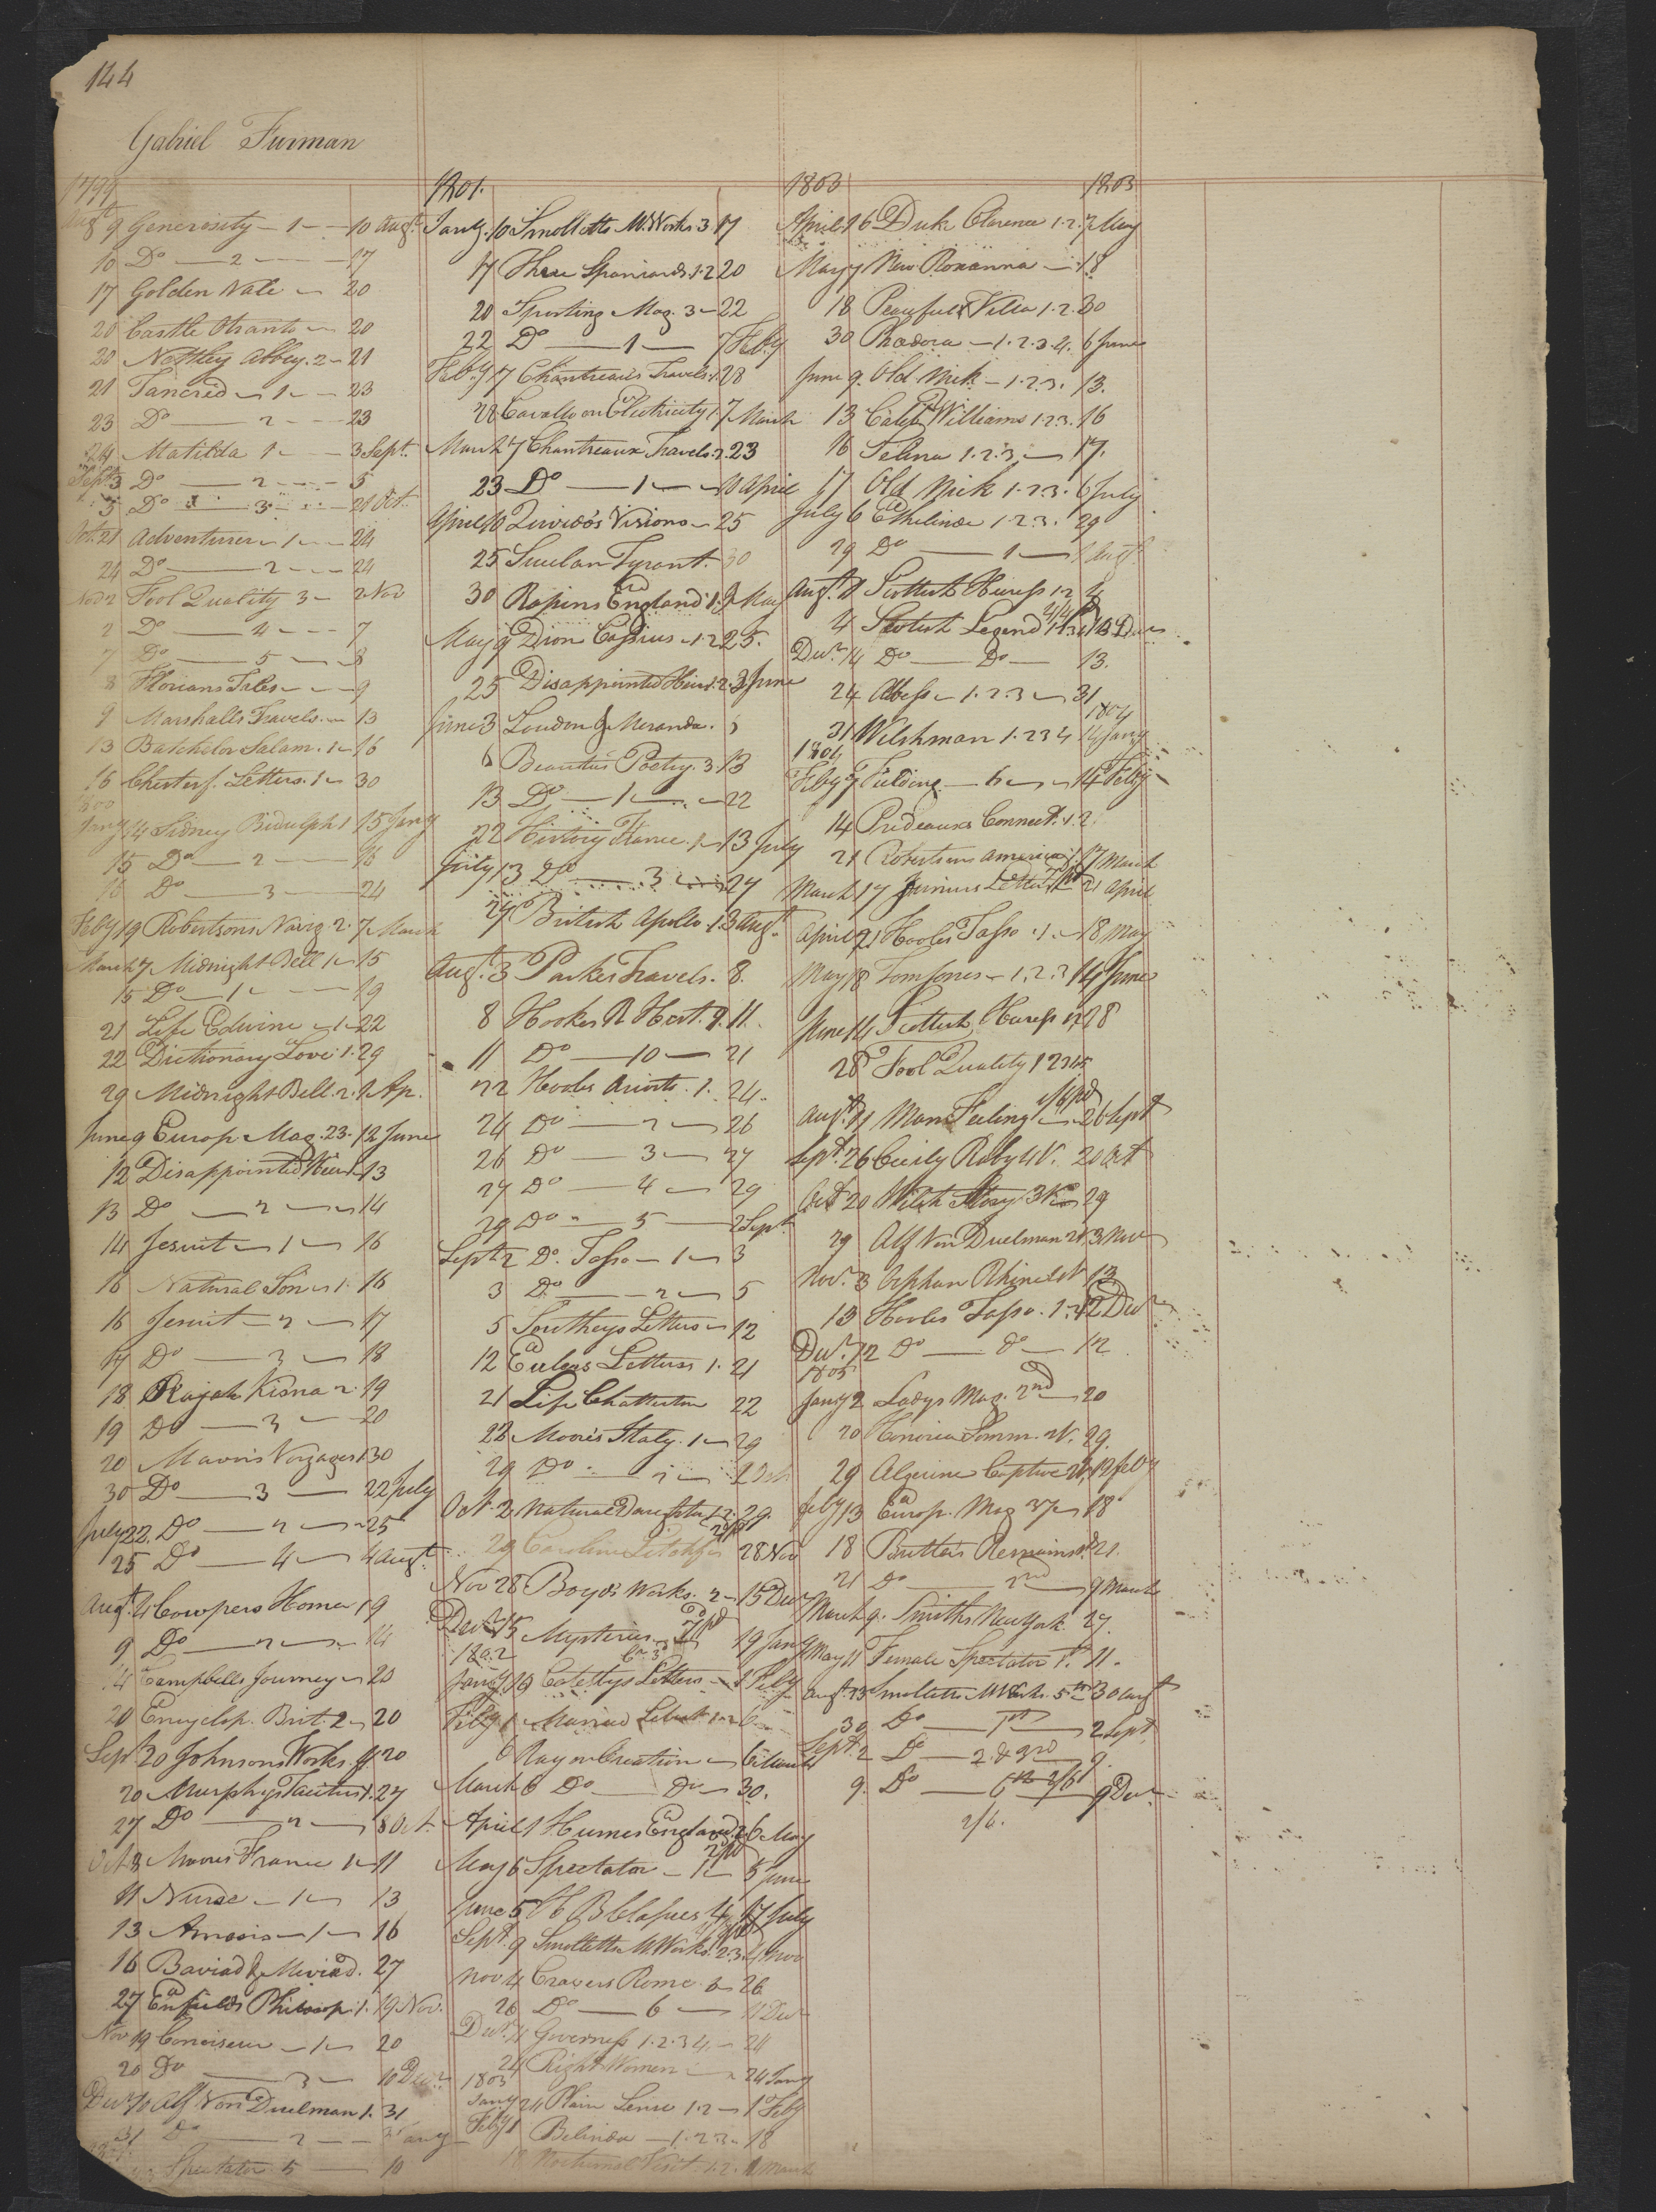 144
Gabriel Furman
1799
Augt 9 Generosity - 1 - - 10 Augt
10 Do - 2 - - 17
17 Golden Nale - 20
20 Castle Otranto - 20
20 Nettley Abbey. 2 - 21
21 Tancred - 1 - - 23
23 Do - 2 - - 23
24 Matilda 1 - - 3 Sept.
Sept 3 Do - 2 - - 5
5 Do - 3 - - 21 Oct.
Oct. 21 Adventurer - 1 - - 24
24 Do - 2 - - 24
Nov 2 Fool Quality 3 - 2 Nov
2 Do - 4 - - 7
7 Do - 5 - - 8
8 Florians Tales - - 9
9 Marshalls Travels - 13
13 Batchelor Salam. 1 - 16
16 Chesterf. Letters. 1 - 30
1800
Jany 14 Sidney Bidulph 1 15 Jany
15 Do - 2 - 16
16 Do - 3 - 24
Feby 19 Robertsons Navig 2. 7 March
March 7 Midnight Bell 1 - 15
15 Do - 1 - - 19
21 Life Edwine - 1 - 22
22 Dictionary Love. 1. 29
29 Midnight Bell. 2. 1 Ap.
June 9 Europ. Mag. 23. 12 June
12 Disappointed Heir 1 - 13
13 Do - 2 - 14
14 Jesuit - 1 - 16
16 Natural Son - 1. 16
16 Jesuit - 2 - 17
17 Do - 3 - 18
18 Rajah Kisna 2. 19
19 Do - 3 - 20
20 Mavors Voyages 1 30
30 Do - 3 - 22 July
July 22. Do - 2 - 25
25 Do - 4 - 4 Augt.
Augt. 4 Cowpers Homer 1 9
9 Do - 2 - 14
14 Campbells Journey - 20
20 Encyclop. Brit. 2 - 20
Sept 20 Johnsons Works 20
20 Murphys Tacitus 1. 27
27 Do - 2 - 8 Oct.
Oct 8 Moores France 1 - 11
11 Nurse - 1 - 13
13 Amasis - 1 - 16
16 Baviad & Meviad. 27
27 Enfields Philosop. 1. 19 Nov.
Nov 19 Conoiseur - 1 - 20
20 Do - 3 - 10 Decr
Decr 10 Alf Von Duelman 1. 31
31 Do - 2 - - Jany
Spectator. 5 - 10
1801.
Jany. 10 Smolletts M. Works. 3. 17
17 Three Spaniards. 1.2 20
20 Sporting Mag. 3 - 22
22 Do - 1 - 7 Feby
Feby 7 Chantreau's Travels. 1. 28
28 Cavallo on Electricity 1. 7 March
March 7 Chantreaux Travels. 2. 23
23 Do - 1 - 10 April
April 10 Quivido's Visions - 25
25 Sicilan Tyrant. 30
30 Rapins England. 1. 9 May
May 9 Dion Cassius - 1.2 25.
25 Disappointed Heir. 1. 2. 3 June
June 3 Loudon & Meranda. 6
6 Beauties Poetry. 3. 13
13 Do - 1 - - 22
22 History France. 1 - 13 July
July 13 Do - 3 - 27
27 British Apollo. 1. 3 Augt.
Augt. 3 Parkes Travels. 8.
8 Hookes R. Hist. 9. 11.
11 Do - 10 - 21
22 Hooles Ariosto. 1. 24.
24 Do - 2 - 26
26 Do - 3 - 27
27 Do - 4 - 29
29 Do - 5 - 2 Sept
Sept 2 Do. Tasso - 1 - 3
3 Do - 2 - 5
5 Southeys Letters - 12
12 Eulers Letters 1. 21
21 Life Chatterton 22
22 Moores Italy. 1 - 29
29 Do - 2 - 2 Oct
Oct. 2 Natural Daughter 1.2. 29.
29 Caroline Litchf. 28 Nov
Nov 28 Boyds Works. 2 - 15 Decr
Decr 15 Mysteries 19 Jany
1802
Jany 19 Letters - 1 Feby
Feby 1 Married Libert. 1.2 6
6 Ray on Creation - 6 March
March 6 Do - Do - 30.
April 1 Humes England. 6 May
May 6 Spectator - 1 - 5 June
June 5 H. B. Clapiers 4 17 July
Sept. 9 Smolletts M. Works. 2.3. 4 Nov
Nov 4 Cravers Rome. 26
26 Do - 6 - 11 Decr
Decr. 11 Governess 1.2.3 4. - 24
24 Rights Women - 24 Jany
1803
Jany 24 Plain Sense 1.2 - 1 Feby
Feby 1 Belinda - 1.2.3 - 18
18 Nocturnal Visit. 1.2. March
1803 1803
April 16 Duke Clarence 1.2. 7 May
May 7 New Roxanna - 18
18 Peaceful Villa 1.2. 30
30 Rhedora - 1.2.3.4. 6 June
June 9. Old Nick - 1.2.3. 13.
13 Caleb Williams 1.2.3. 16
16 Selina 1.2.3 - 17.
17 Old Nick 1.2.3. 6 July
July 6 Ethelinde 1.2.3. 29
29 Do - 1 - 1 Augt
Augt. 1 Scottish Heiress 1.2 4
4 Scotish Legend Decr
Decr. 14 Do - Do - 13.
24 Abess - 1.2.3 - 31
1804
31 Welshman 1.2 3 4 14 Jany
1804
Feby 7 Fielding - 6 - 14 Feby
14 Prideaux's Connect. 1. 2.
21 Robertsons America. 1. 17 March
March 17 Junius Letters 21 April
April 21 Hooles Tasso. 1. - 18 May
May 18 Tom Jones - 1.2.3 14 June
June 14 Scottish Heiress 28
28 Fool Quality 1 2 3 4 5
Augt. 11 Man Feeling 26 Sept
Sept. 26 Cecily Raby 4 V. 20 Oct
Oct 20 Welsh Story. 3 V. 29
29 Alf Von Duelman 2 V. 3 Nov
Nov. 3 Orphan Rhine 2 V. 13
13 Hooles Tasso. 1.2 12 Decr
Decr. 12 Do - Do - 12
1805
Jany 2 Ladys Mag. 2nd - 20
20 Honoria Somm. 2 V. 29.
29 Algerine Captive 2 V. 12 Feby
Feby 13 Europ. Mag 37 - 18
18 Butlers Remains 1. 21.
21 Do - 2nd - 9 March
March 9. Smiths New York. 27.
May 11 Female Spectator 1st. 11.
Augt. 23 Smolletts M Works. 5th - 30 Augt
30 Do - 1st - 2 Sept.
Sept. 2 Do - 2. & 3rd 9.
9. Do - 6th 2/6 9 Decr.
2/6.